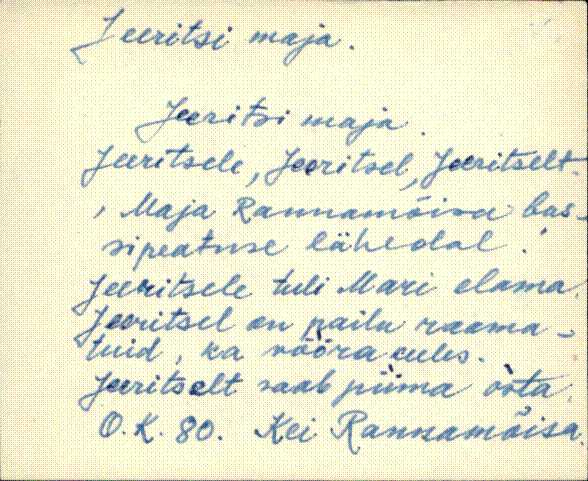 Jeeritsi maja.
Jeeritsi maja.
Jeeritsele, Jeeritsel, Jeeritselt.
, Maja Rannamõisa bus-
sipeatuse lähedal.
Jeeritsele tuli Mari elama
Jeeritsel on palju raama-
tuid, ka võõrakeeles.
Jeeritselt saab piima osta.
O.K. 80. Kei Rannamõisa.